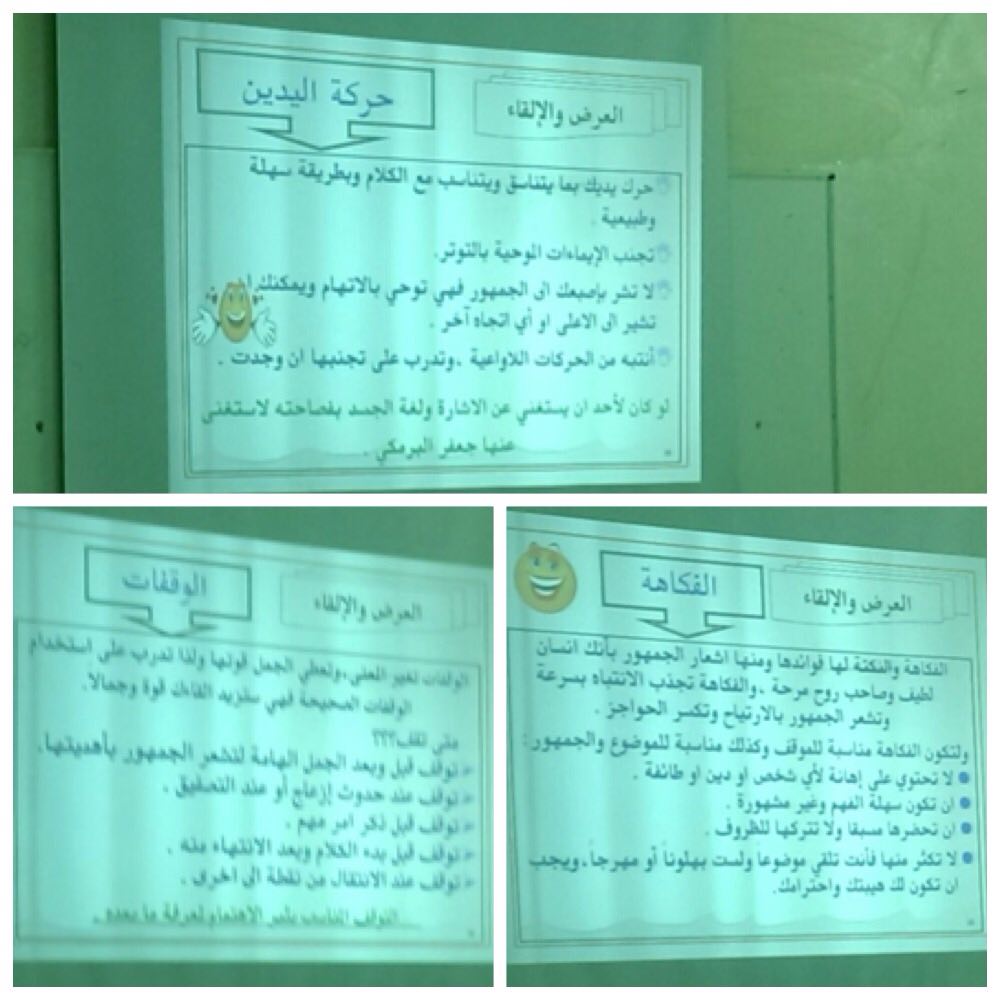 العرض والإلقاء
حركة اليدين
حرك يديك بما يتناسق ويتناسب مع الكلام وبطريقة سهلة
وطبيعية .
تجنب الإيماءات الموحية بالتوتر.
لا تشر بإصبعك الى الجمهور فهي توحي بالاتهام ويمكنك
تشير الى الاعلى او أي اتجاه آخر .
أنتبه من الحركات اللاواعية ،وتدرب على تجنبها ان وجدت .
لو كان لأحد ان يستغني عن الاشارة ولغة الجسد بفصاحته لاستغنى
عنها جعفر البرمكي .
العرض والإلقاء
الفكاهة
الفكاهة والنكتة لها فوائدها ومنها اشعار الجمهور بأنك انسان
لطيف وصاحب روح مرحة ،والفكاهة تجذب الانتباه بسرعة
وتشعر الجمهور بالارتياح وتكسر الحواجز .
ولتكون الفكاهة مناسبة للموقف وكذلك مناسبة للموضوع والجمهور :
لا تحتوي على إهانة لأي شخص او دين او طائفة .
ان تكون سهلة الفهم وغير مشهورة .
ان تحضرها مسبقا ولا تتركها للظروف .
لا تكثر منها فأنت تلقي موضوعاً ولست بهلوناً أو مهرجاً،ويجب
ان تكون لك هيبتك واحترامك.
العرض والإلقاء
الوقفات
الوقفات تغير المعنى،وتعطي الجمل قوتها ولذا تدرب على استخدام
الوقفات الصحيحة فهي ستزيد القاءك قوة وجمالا.
متى تقف؟؟؟
توقف قبل وبعد الجمل الهامة لتشعر الجمهور بأهميتها.
توقف عند حدوث إزعاج أو عند التصفيق .
توقف قبل ذكر امر مهم .
توقف قبل بدء الكلام وبعد الانتهاء منه .
توقف عند الانتقال من نقطة الى اخرى .
التوقف المناسب يثير الاهتمام لمعرفة ما بعده